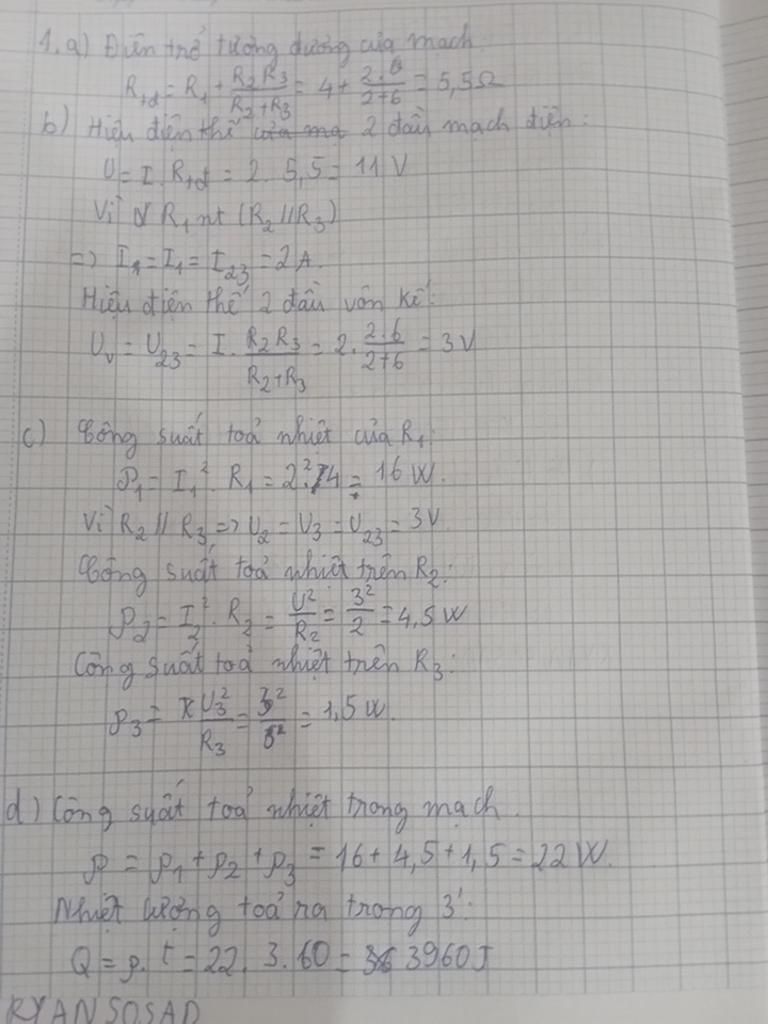 1. a) Điện trở tương đương của mạch
R_tđ = R₁ + R₂R₃/(R₂+R₃) = 4 + 2.6/(2+6) = 5,5Ω
b) Hiệu điện thế của ma 2 đầu mạch điện:
U = I. R_tđ = 2. 5,5 = 11 V
Vì R₁ nt (R₂ // R₃)
=> I₁ = I₁ = I₂₃ = 2 A.
Hiệu điện thế 2 đầu vôn kế:
U_v = U₂₃ = I. R₂R₃/(R₂+R₃) = 2. 2.6/(2+6) = 3 V
c) Công suất toả nhiệt của R₁:
P₁ = I₁². R₁ = 2².4 = 16 W.
Vì R₂ // R₃ => U₂ = U₃ = U₂₃ = 3V
Công suất toả nhiệt trên R₂:
P₂ = I₂². R₂ = U²/R₂ = 3²/2 = 4,5 W
Công suất toả nhiệt trên R₃:
P₃ = U₃²/R₃ = 3²/6 = 1,5 W.
d) Công suất toả nhiệt trong mạch.
P = P₁ + P₂ + P₃ = 16 + 4,5 + 1,5 = 22 W.
Nhiệt lượng toả ra trong 3':
Q = P. t = 22. 3. 60 = 3960J
RYANSOSAD